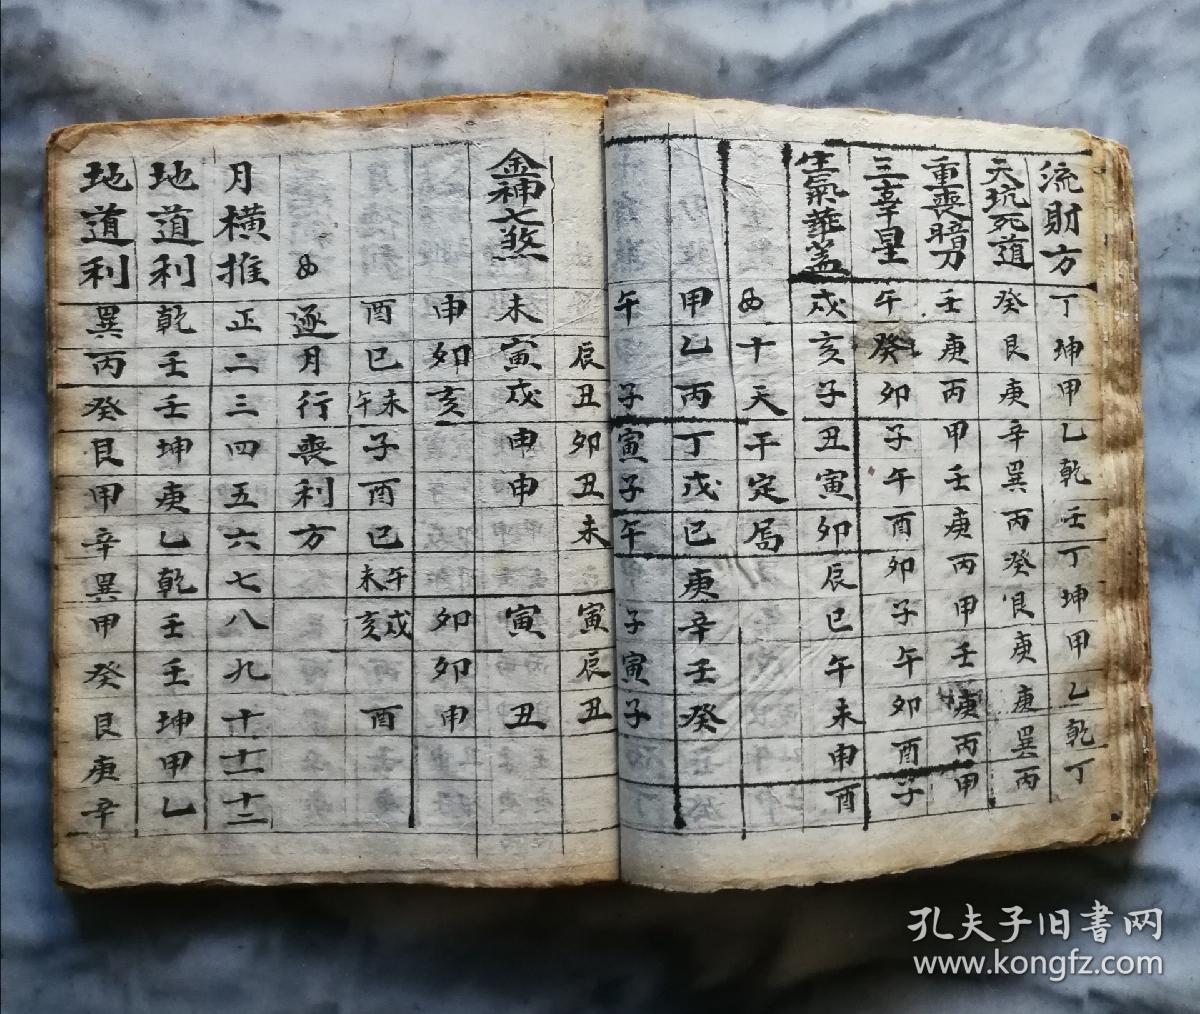 流財方 丁 坤 甲 乙 乾 壬 丁 坤 甲 乙 乾 丁
天坑死道 癸 艮 庚 辛 巽 丙 癸 艮 庚 庚 巽 丙
重喪暗刀 壬 庚 丙 甲 壬 庚 丙 甲 壬 庚 丙 甲
三辜星 午 癸 卯 子 午 酉 卯 子 午 卯 酉 子
生氣華盖 戌 亥 子 丑 寅 卯 辰 巳 午 未 申 酉
十天干定局
甲 乙 丙 丁 戊 己 庚 辛 壬 癸
午 子 寅 子 午 子 寅 子
辰 丑 卯 丑 未 寅 辰 丑
金神七煞 未 寅 戌 申 申 寅 丑
申 卯 亥 卯 卯 申
酉 巳 午未 子 酉 巳 午未 戌亥 酉
逐月行喪利方
月橫推 正 二 三 四 五 六 七 八 九 十 十一 十二
地道利 乾 壬 壬 坤 庚 乙 乾 壬 壬 坤 甲 乙
地道利 巽 丙 癸 艮 甲 辛 巽 甲 癸 艮 庚 辛
孔夫子旧书网
www.kongfz.com